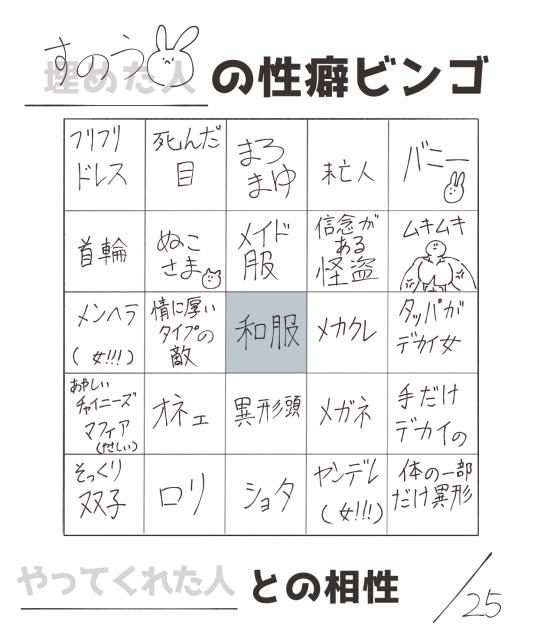 すのう
埋めた人
の性癖ビンゴ
フリフリ
ドレス
死んだ
目
まろ
まゆ
未亡人
バニー
首輪
ぬこ
さま
メイド
服
信念が
ある
怪盗
ムキムキ
メンヘラ
(女!!!)
情に厚い
タイプの
敵
和服
メカクレ
タッパが
デカイ女
あやしい
チャイニーズ
マフィア
(やさしい)
オネェ
異形頭
メガネ
手だけ
デカイの
そっくり
双子
ロリ
ショタ
ヤンデレ
(女!!!)
体の一部
だけ異形
やってくれた人
との相性
/25